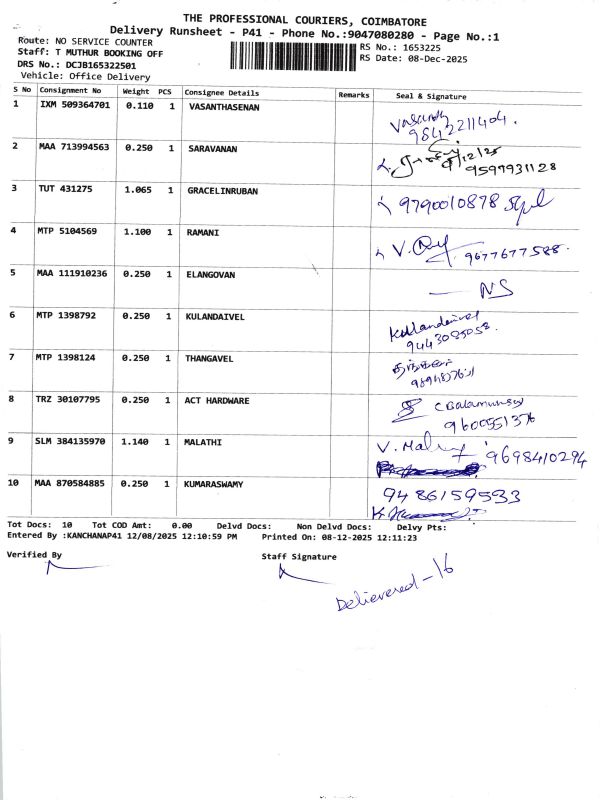 THE PROFESSIONAL COURIERS, COIMBATORE
Delivery Runsheet - P41 - Phone No.:9047080280 - Page No.:1
Route: NO SERVICE COUNTER
RS No.: 1653225
Staff: T MUTHUR BOOKING OFF
RS Date: 08-Dec-2025
DRS No.: DCJB165322501
Vehicle: Office Delivery
S No Consignment No Weight PCS Consignee Details Remarks Seal & Signature
1 IXM 509364701 0.110 1 VASANTHASENAN
9842211404.
2 MAA 713994563 0.250 1 SARAVANAN
9597931128
3 TUT 431275 1.065 1 GRACELINRUBAN 9790010878
4 MTP 5104569 1.100 1 RAMANI V. 9677677588.
5 MAA 111910236 0.250 1 ELANGOVAN NS
6 MTP 1398792 0.250 1 KULANDAIVEL Kullandaivel
9443085058.
7 MTP 1398124 0.250 1 THANGAVEL
8 TRZ 30107795 0.250 1 ACT HARDWARE
9600551376
9 SLM 384135970 1.140 1 MALATHI V. 9698410294
10 MAA 870584885 0.250 1 KUMARASWAMY 9486159533
Tot Docs: 10 Tot COD Amt: 0.00 Delvd Docs: Non Delvd Docs: Delvy Pts:
Entered By :KANCHANAP41 12/08/2025 12:10:59 PM Printed On: 08-12-2025 12:11:23
Verified By Staff Signature
Delievered - 16